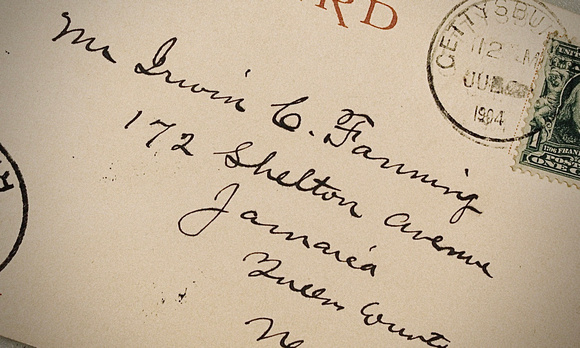 RD
GETTYSBU
112 M
JUL
1904
Mr Irwin C. Fanning
172 Shelton avenue
Jamaica
Queens County